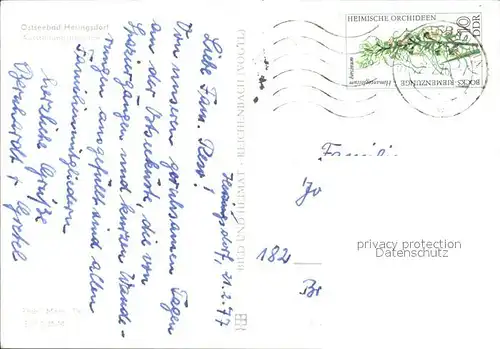 Ostseebad Heringsdorf
Heringsdorf, 21.2.77
Liebe Fam. Ress!
Von unseren geruhsamen Tagen
an der Ostseeküste, die von
Spaziergängen und kurzen Wande-
rungen ausgefüllt sind allen
Familienmitgliedern
herzliche Grüße
Bernhardt + Gretel
BILD UND HEIMAT · REICHENBACH
HEIMISCHE ORCHIDEEN
BOCKS-RIEMENZUNGE
Himantoglossum
10
DDR
Famili
Jo
182
Br
privacy protection
Datenschutz